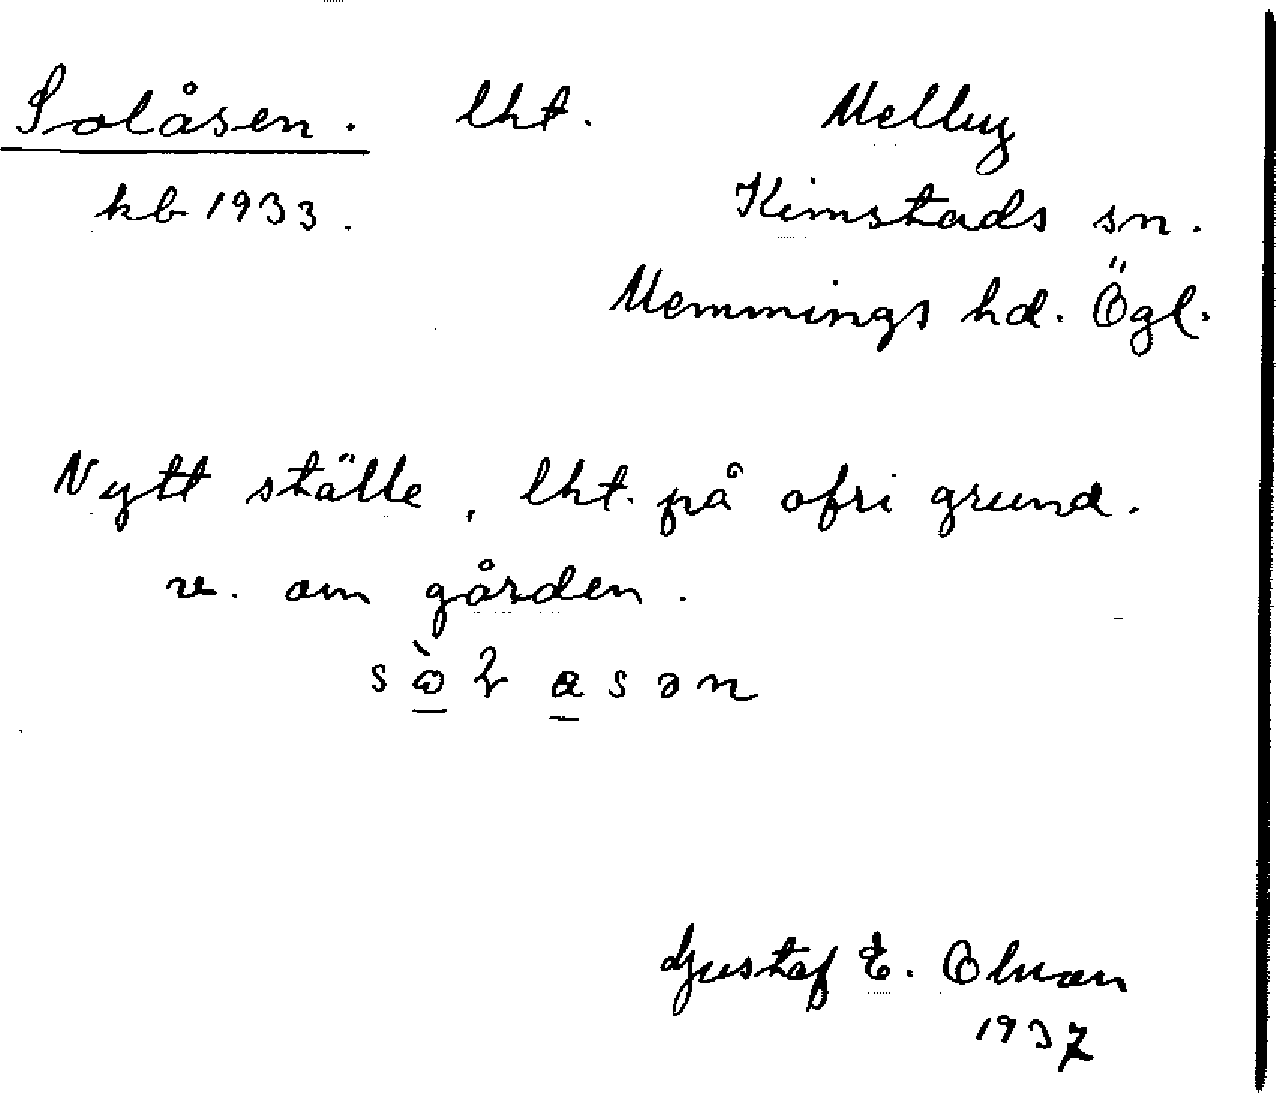 Solåsen. lht. Melby
kb 1933. Kimstads sn.
Memmings hd. Ögl.
Nytt ställe, lht. på ofri grund.
v. om gården.
Gustaf E. Olman
1937